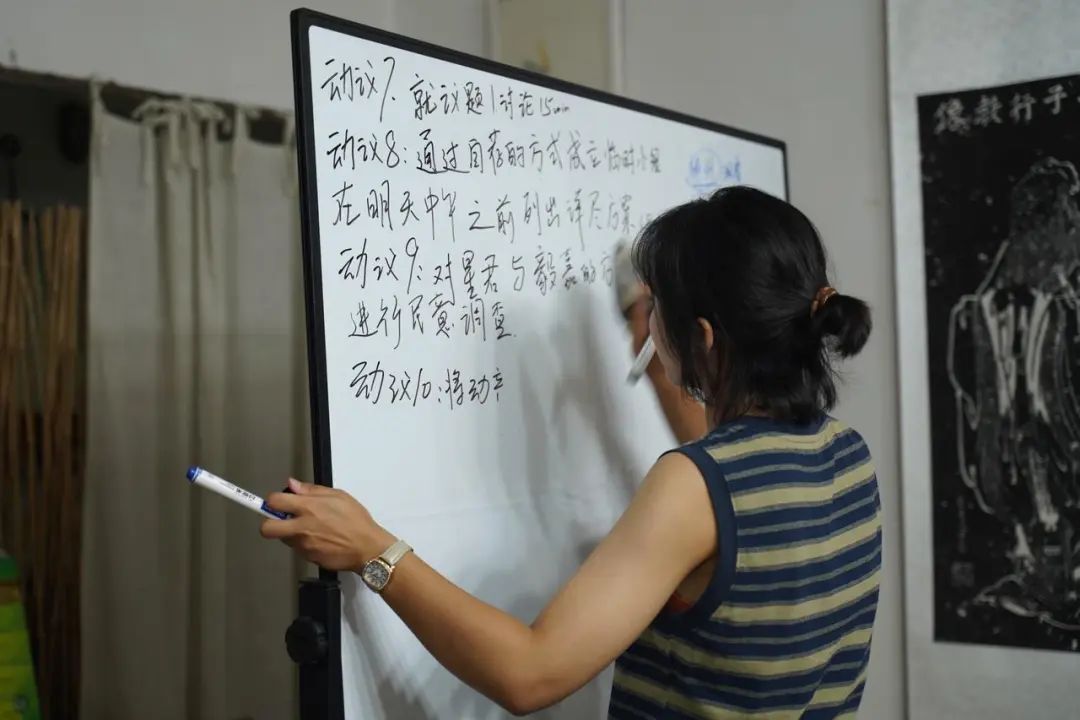 动议7: 就议题1讨论15min
动议8: 通过自荐的方式成立临时小组
在明天中午之前列出详尽方案
动议9: 对星君与毅嘉的方
进行民意调查.
动议10: 将动